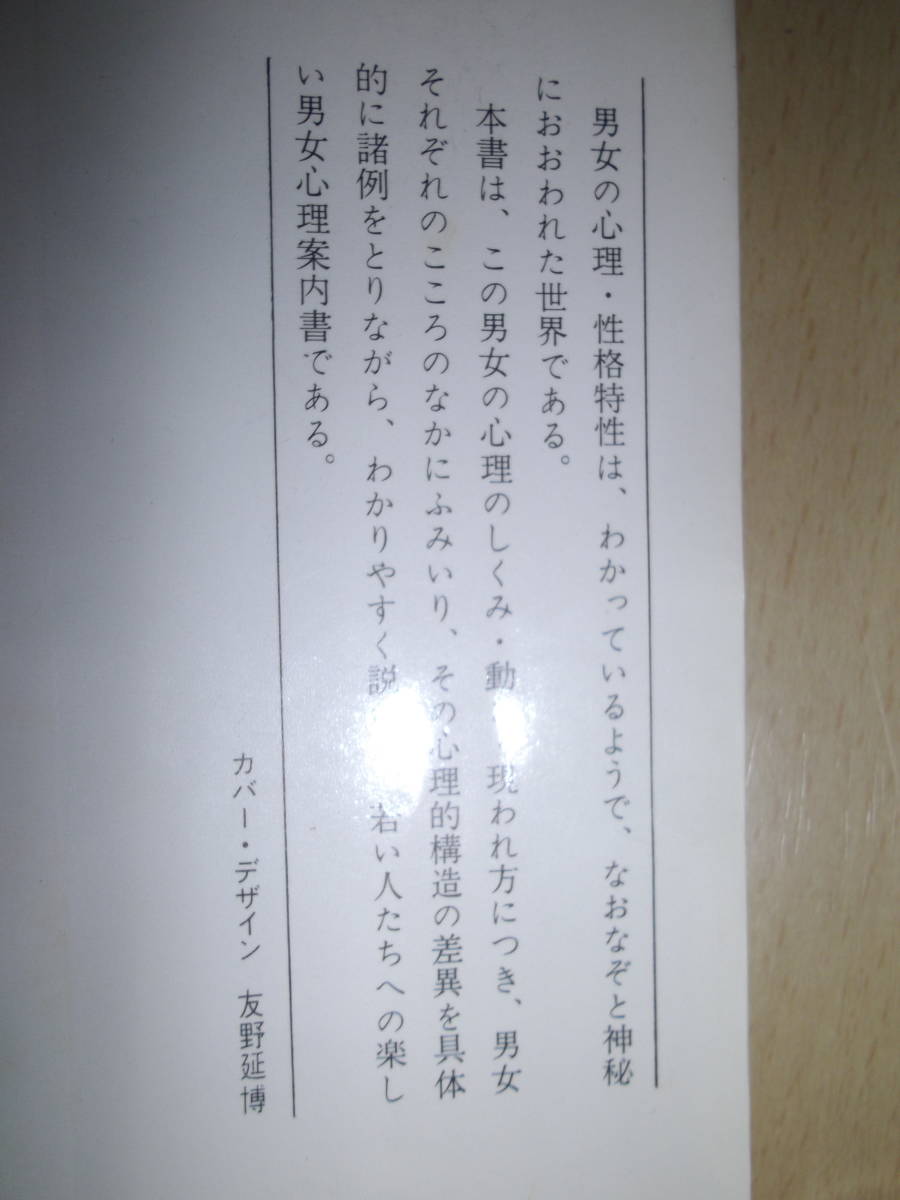 男女の心理・性格特性は、わかっているようで、なおなぞと神秘
におおわれた世界である。
本書は、この男女の心理のしくみ・動 現われ方につき、男女
それぞれのこころのなかにふみいり、その心理的構造の差異を具体
的に諸例をとりながら、わかりやすく説 若い人たちへの楽し
い男女心理案内書である。
カバー・デザイン 友野延博